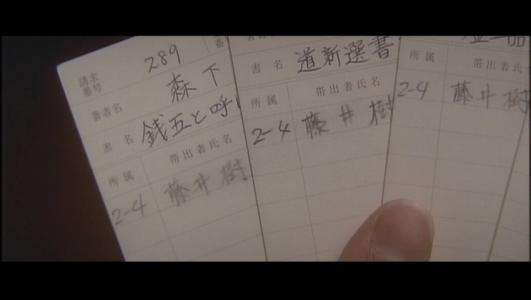 請求
番号 289
著者名 森下
書名 銭五と呼
所属 帯出者氏名
2-4 藤井樹
書名 道新選書
所属 帯出者氏名
2-4 藤井樹
所属 帯出者氏名
2-4 藤井樹